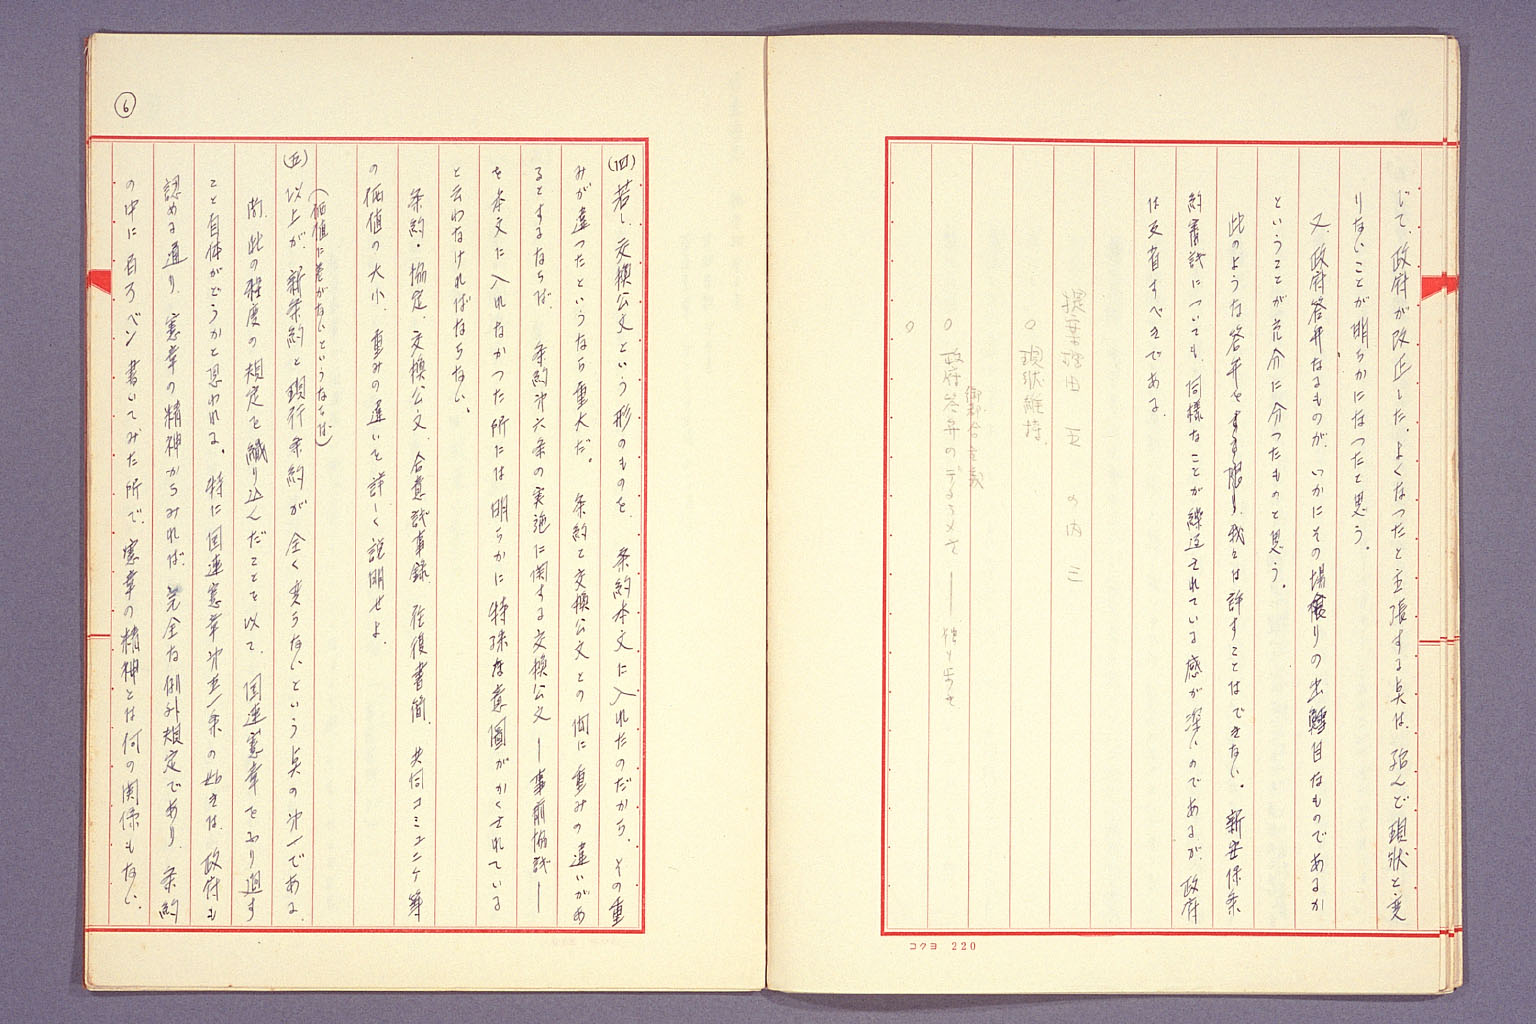 じて、政府が改正した、よくなつたと主張する点は、殆んど現状と変
りないことが明らかになつたと思う。
又、政府答弁なるものが、いかにその場限りの出鱈目なものであるか
ということが充分に分つたものと思う。
此のような答弁をする限り、我々は許すことはできない。新安保条
約審議についても、同様なことが繰返されている感が深いのであるが、政府
は反省すべきである。
提案理由 五の内三
○現状維持、
御都合主義
○政府答弁のデタラメさ――独り歩き
○
コクヨ 220
⑥
(四)若し、交換公文という形のものを、条約本文に入れたのだから、その重
みが違つたというなら重大だ。条約と交換公文との間に重みの違いがあ
るとするならば、条約第六条の実施に関する交換公文―事前協議―
を本文に入れなかつた所には明らかに特殊な意図がかくされている
と云わなければならない。
条約・協定、交換公文、合意議事録、往復書簡、共同コミュニケ等
の価値の大小、重みの違いを詳しく説明せよ。
(価値に差がないというならば)
(五)以上が、新条約と現行条約が全く変らないという点の第一である。
尚、此の程度の規定を織り込んだことを以て、国連憲章をふり廻す
こと自体がどうかと思われる。特に国連憲章第五一条の如きは、政府も
認める通り、憲章の精神からみれば、完全な例外規定であり、条約
の中に百ろペン書いてみた所で、憲章の精神とは何の関係もない。